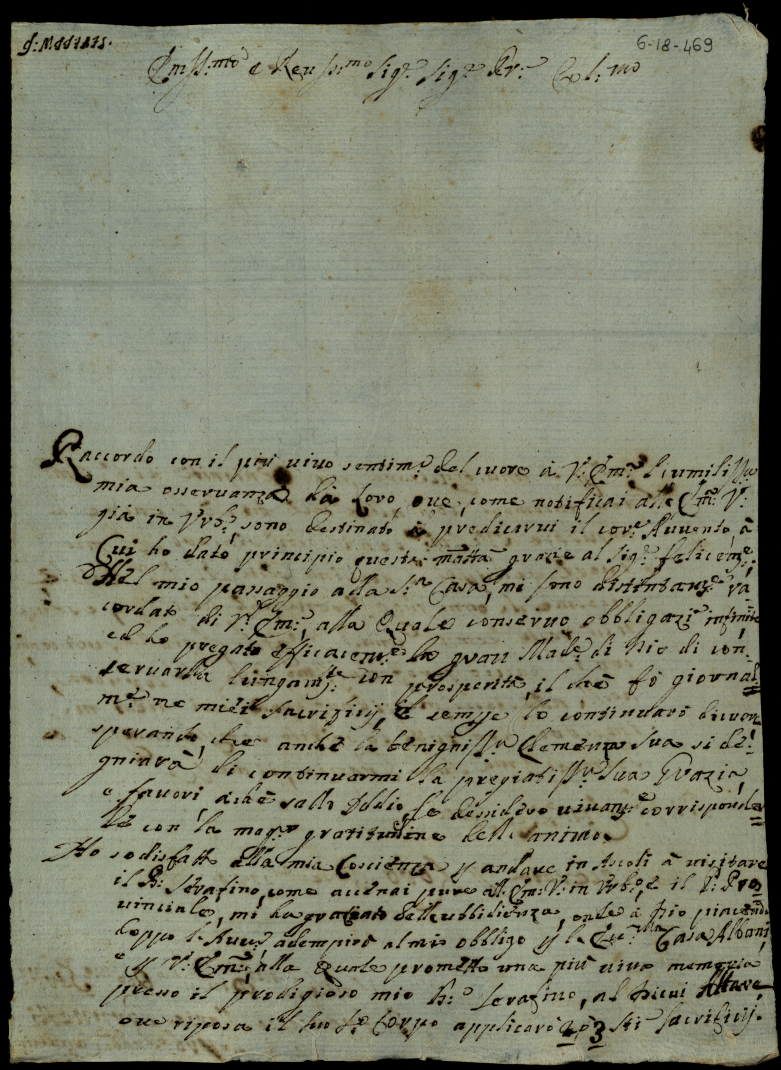 6-18-469
Em.mo e Rev.mo Sig.r Sig.r Pr.e Col.mo
Raccordo con il più vivo sentim.to del cuore à V. Em.a l'umiliss.a
mia osservanza da Loro, ove, come notificai all' Em.a V.a
già in Urb.o, sono destinato à predicarvi il cor.e Avvento, à
Cui ho dato principio questa matta grazie al Sig.e felicem.e.
Nel mio passaggio alla S.ta Casa, mi sono distintam.e ra-
cordato di V.a Em.a, alla Quale conservo obbligaz.i infinite
ed ho pregato efficacem.e la gran Mad.e di Dio di con-
servarla lungam.te con prosperità, il che fò giornal-
m.e ne miei Sacrifizij, e sempre lo continuarò di cuore
sperando, che anche la benigniss.a Clemenza Sua si de-
gniarà di continuarmi la pregiatiss.a Sua Grazia,
e favori, à che sallo Iddio, se desidero vivam.e corrisponder-
le con la mag.r gratitudine dell' animo.
Ho sodisfatto alla mia Coscienza p andare in Ascoli à visitare
il B. Serafino, come accenai pure all' Em.a V. in Urb.o, e il P. Pro-
vinciale, mi ha graziato dell' ubbidienza, onde à Dio piacendo
doppo l'Avv.o adempirò al mio obbligo p l' Ecc.ma Casa Albani
e p V.a Em.a, alla Quale prometto una più viva memoria
presso il prodigioso mio B. Serafino, al di cui Altare,
ove riposa il suo S. Corpo applicarò 2, ò 3 S.ti Sacrifizij.